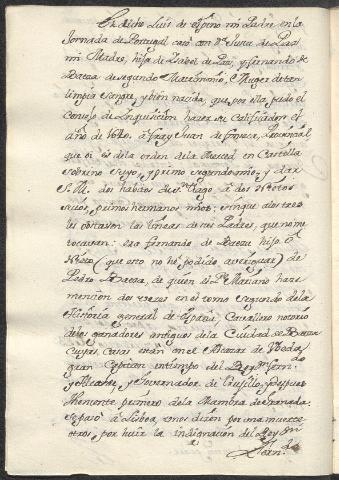 El dicho Luis de Espino mi Padre, en la
Jornada de Portugal casó con Dª Juana de Paz
mi Madre, hija de Isabel de Paz, y Fernando de
Baeza de segundo Matrimonio, Muger de tan
limpia sangre, y bien nacida, que por ella pudo el
Consejo de Inquisición hacer su Calificador el
año de à Fray Juan de Provincial
que oi és de la orden de la Merced en Castilla
sobrino suyo, y primo segundo mio, y dar
S. M. dos habitos de Sntiago à dos Nietos
suios, primos hermanos mios; aunque a los tres
les costaron las lineas de sus Padres, que no me
tocavan: era Fernando de Baeza hijo ô
Nieto (que esto no hé podido averiguar) de
Pedro Baeza, de quien el Pe Mariana hace
mencion dos vezes en el tomo segundo de la
Historia general de España Cavallero notorio
delos ganadores antiguos de la Ciudad de Baeza
cuyas Casas están en el Alcazar de Vbeda,
gran Capitan en tiempo del Rey Dn Ferndo
y Alcayde, y Governador de Trusillo, y despues
Theniente primero de la Alhambra de Granada
se pasó à Lisboa, unos dizen por una muerte
otros, por huir la indignacion del Rey Dn
Fern.do